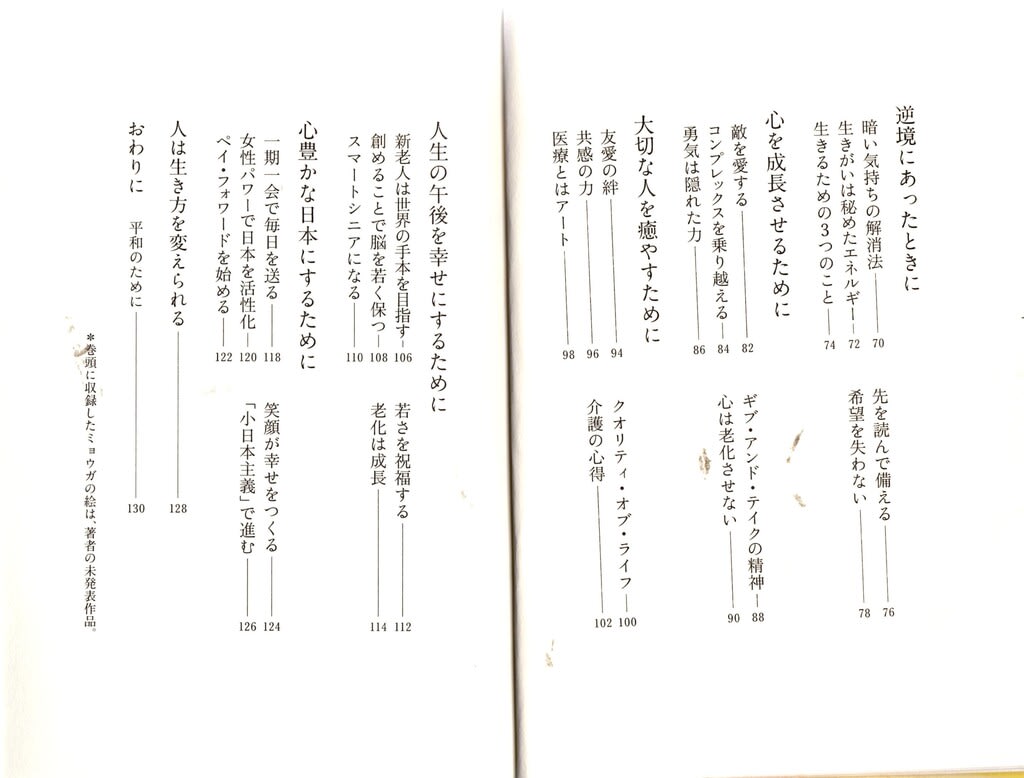 逆境にあったときに
暗い気持ちの解消法――70
生きがいは秘めたエネルギー―72
生きるための3つのこと――74
先を読んで備える――76
希望を失わない――78
心を成長させるために
敵を愛する――82
コンプレックスを乗り越える―84
勇気は隠れた力――86
ギブ・アンド・テイクの精神―88
心は老化させない――90
大切な人を癒やすために
友愛の絆――94
共感の力――96
医療とはアート――98
クオリティ・オブ・ライフ―100
介護の心得――102
人生の午後を幸せにするために
新老人は世界の手本を目指す―106
創めることで脳を若く保つ―108
スマートシニアになる――110
若さを祝福する――112
老化は成長――114
心豊かな日本にするために
一期一会で毎日を送る――118
女性パワーで日本を活性化―120
ペイ・フォワードを始める――122
笑顔が幸せをつくる――124
「小日本主義」で進む――126
人は生き方を変えられる――128
おわりに 平和のために――130
＊巻頭に収録したミョウガの絵は、著者の未発表作品。